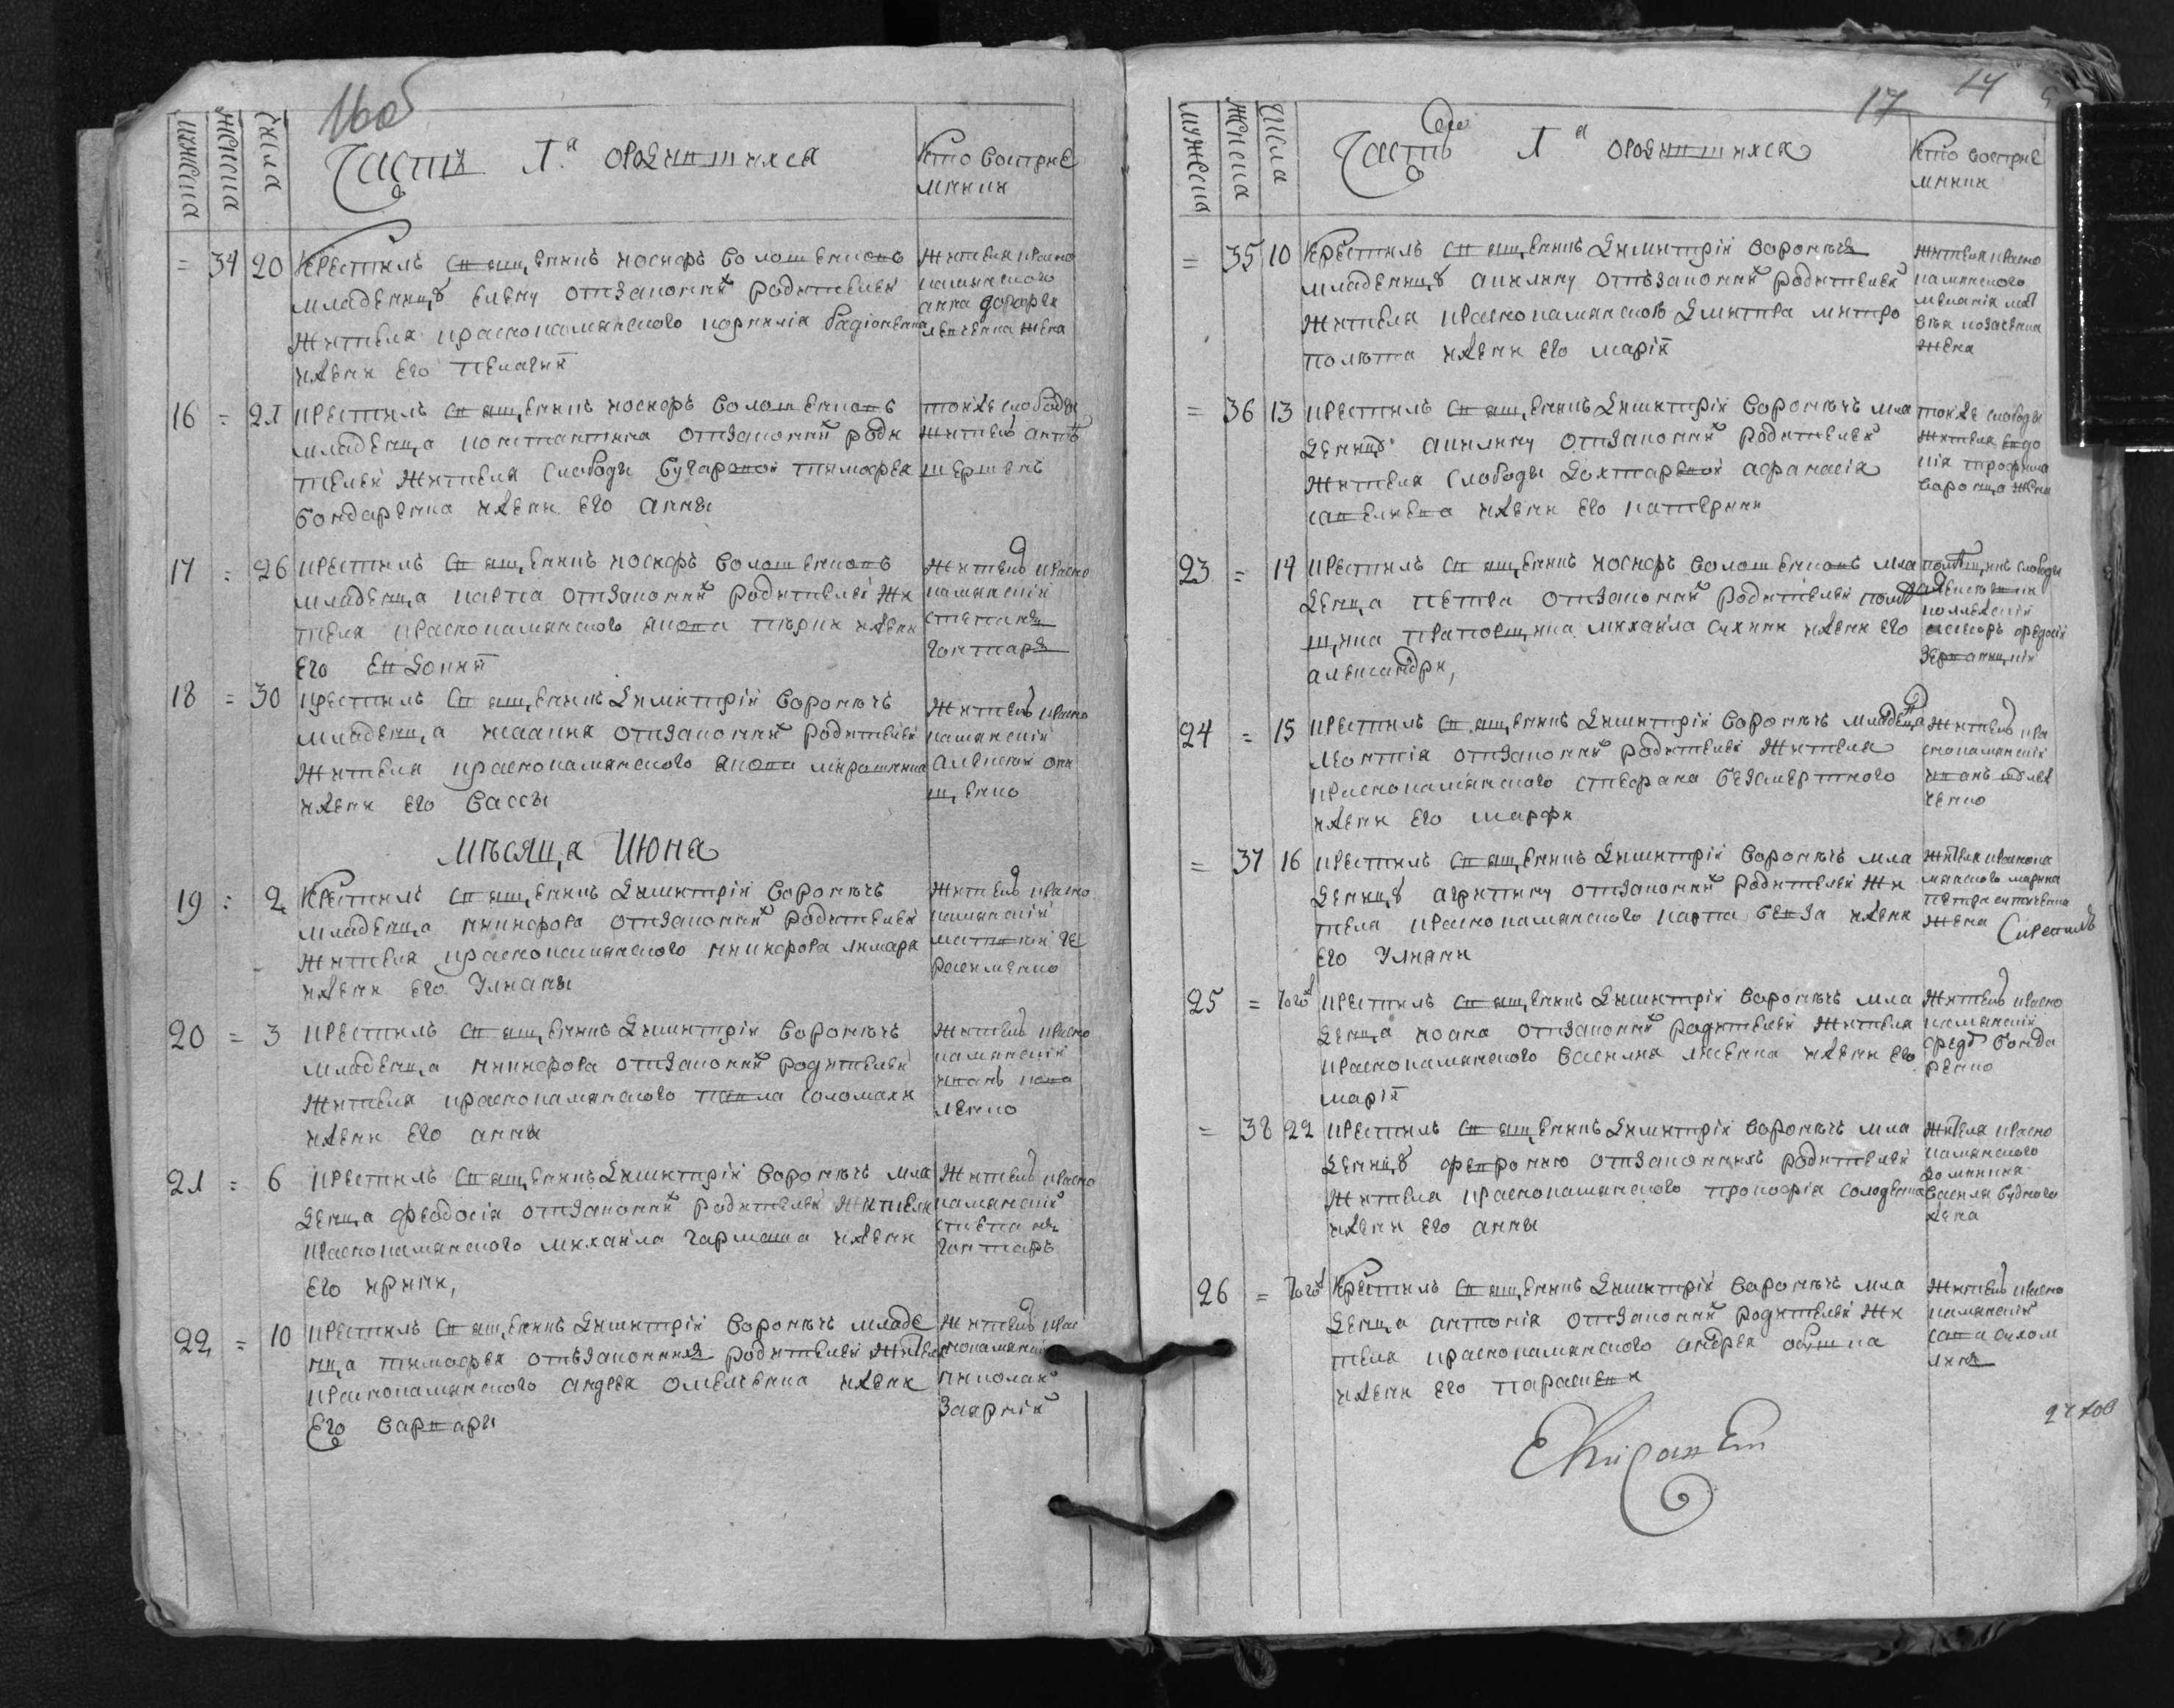 16об
мужеска
женска
числа
Часть 1.а ородившихся
Кто восприе
мники
= 34 20 Крестилъ священникъ иосифъ волошеновъ
младенцѣ елену отзаконнй родителей
жителя краснокамянского корнилія радіоненка
иженн его пелагии
жителя красно
камянского
анна дорофея
левченка жена
16 = 21 крестилъ священникъ иосифъ волошеновъ
младенца константина отзаконнй роди
телей жителя слободы бугарвой тимофея
бондаренка ижени его анны
тояже слободы
житель антонъ
шершень
17 = 26 крестилъ священникъ иосифъ волошеновъ
младенца карпа отзаконнй родителей жи
теля краснокамянского якова тюрин ижени
его евдокии
житель красно
камянскій
стефанъ
гонтарь
18 = 30 крестилъ священникъ димитрій вороничъ
младенца исаакия отзаконнй родителей
жителя краснокамянского якова мирошника
ижени его вассы
житель красно
камянскій
алексей они
щенко
Мѣсяца Июня
19 = 2 Крестилъ священникъ димитрій вороничъ
младенца никифора отзаконнй родителей
жителя краснокамянского никифора лимаря
ижени его улианы
житель красно
камянскій
матвей ге
расименко
20 = 3 крестилъ священникъ димитрій вороничъ
младенца никифора отзаконнй родителей
жителя краснокамянского павла соломахи
ижени его анны
житель красно
камянскій
иванъ кова
ленко
21 = 6 крестилъ священникъ димитрій вороничъ мла
денца феодосія отзаконнй родителей жителя
краснокамянского михаила гармаша ижени
его ирини,
житель красно
камянскій
стефанъ
гонтарь
22 = 10 крестилъ священникъ димитрій вороничъ младе
нца тимофея отъзаконнихъ родителей жителя
краснокамянского андрея омелченка ижени
его варвары
житель крас
нокамянскій
николай
заярній
17 14
мужеска
женска
числа
Часть 1а ородившихся
Кто восприе
мники
= 35 10 Крестилъ священникъ димитрій вороничъ
младенцѣ акилину отъзаконнй родителей
жителя краснокамянского дмитра митро
полюта ижени его маріи
жителя красно
камянского
меланія мат
вея козаченка
жена
= 36 13 крестилъ священникъ димитрій вороничъ мла
денцѣ акилину отзаконнй родителей
жителя слободы дохтаревой афанасія
савелиева ижени его катерини
тояже слободы
жителя евдо
кія трофима
варовца жена
23 = 14 крестилъ священникъ иосифъ волошеновъ мла
денца петра отзаконнй родителей помѣ
щика прапорщика михаила сухини ижени его
александри,
помѣщикъ слободы
алексеевки
коллежскій
асесоръ федосій
24 = 15 крестилъ священникъ димитрій вороничъ младенца
леонтія отзаконнй родителей жителя
краснокамянского стефана безсмертного
ижени его марфи
житель кра
снокамянскій
иванъ шевл
ченко
= 37 16 крестилъ священникъ димитрій вороничъ мла
денцѣ агрипину отзаконнй родителей жи
теля краснокамянского карпа бевза ижени
его улияни
жителя краснока
мянского марина
жена
25 = того крестилъ священникъ димитрій вороничъ мла
денца иоана отзаконнй родителей жителя
краснокамянского василия лисенка ижени его
маріи
житель красно
камянскій
федоръ бонда
ренко
= 38 22 крестилъ священникъ димитрій вороничъ мла
денцѣ февронию отзаконнихъ родителей
жителя краснокамянского прокофія солодвника
ижени его анны
жителя красно
камянского
доминика
василя будного
жена
26 = того Крестилъ священникъ димитрій вороничъ мла
денца антонія отзаконнй родителей жи
теля краснокамянского андрея
ижени его параскеви
житель красно
камянскій
сава сухом
линъ